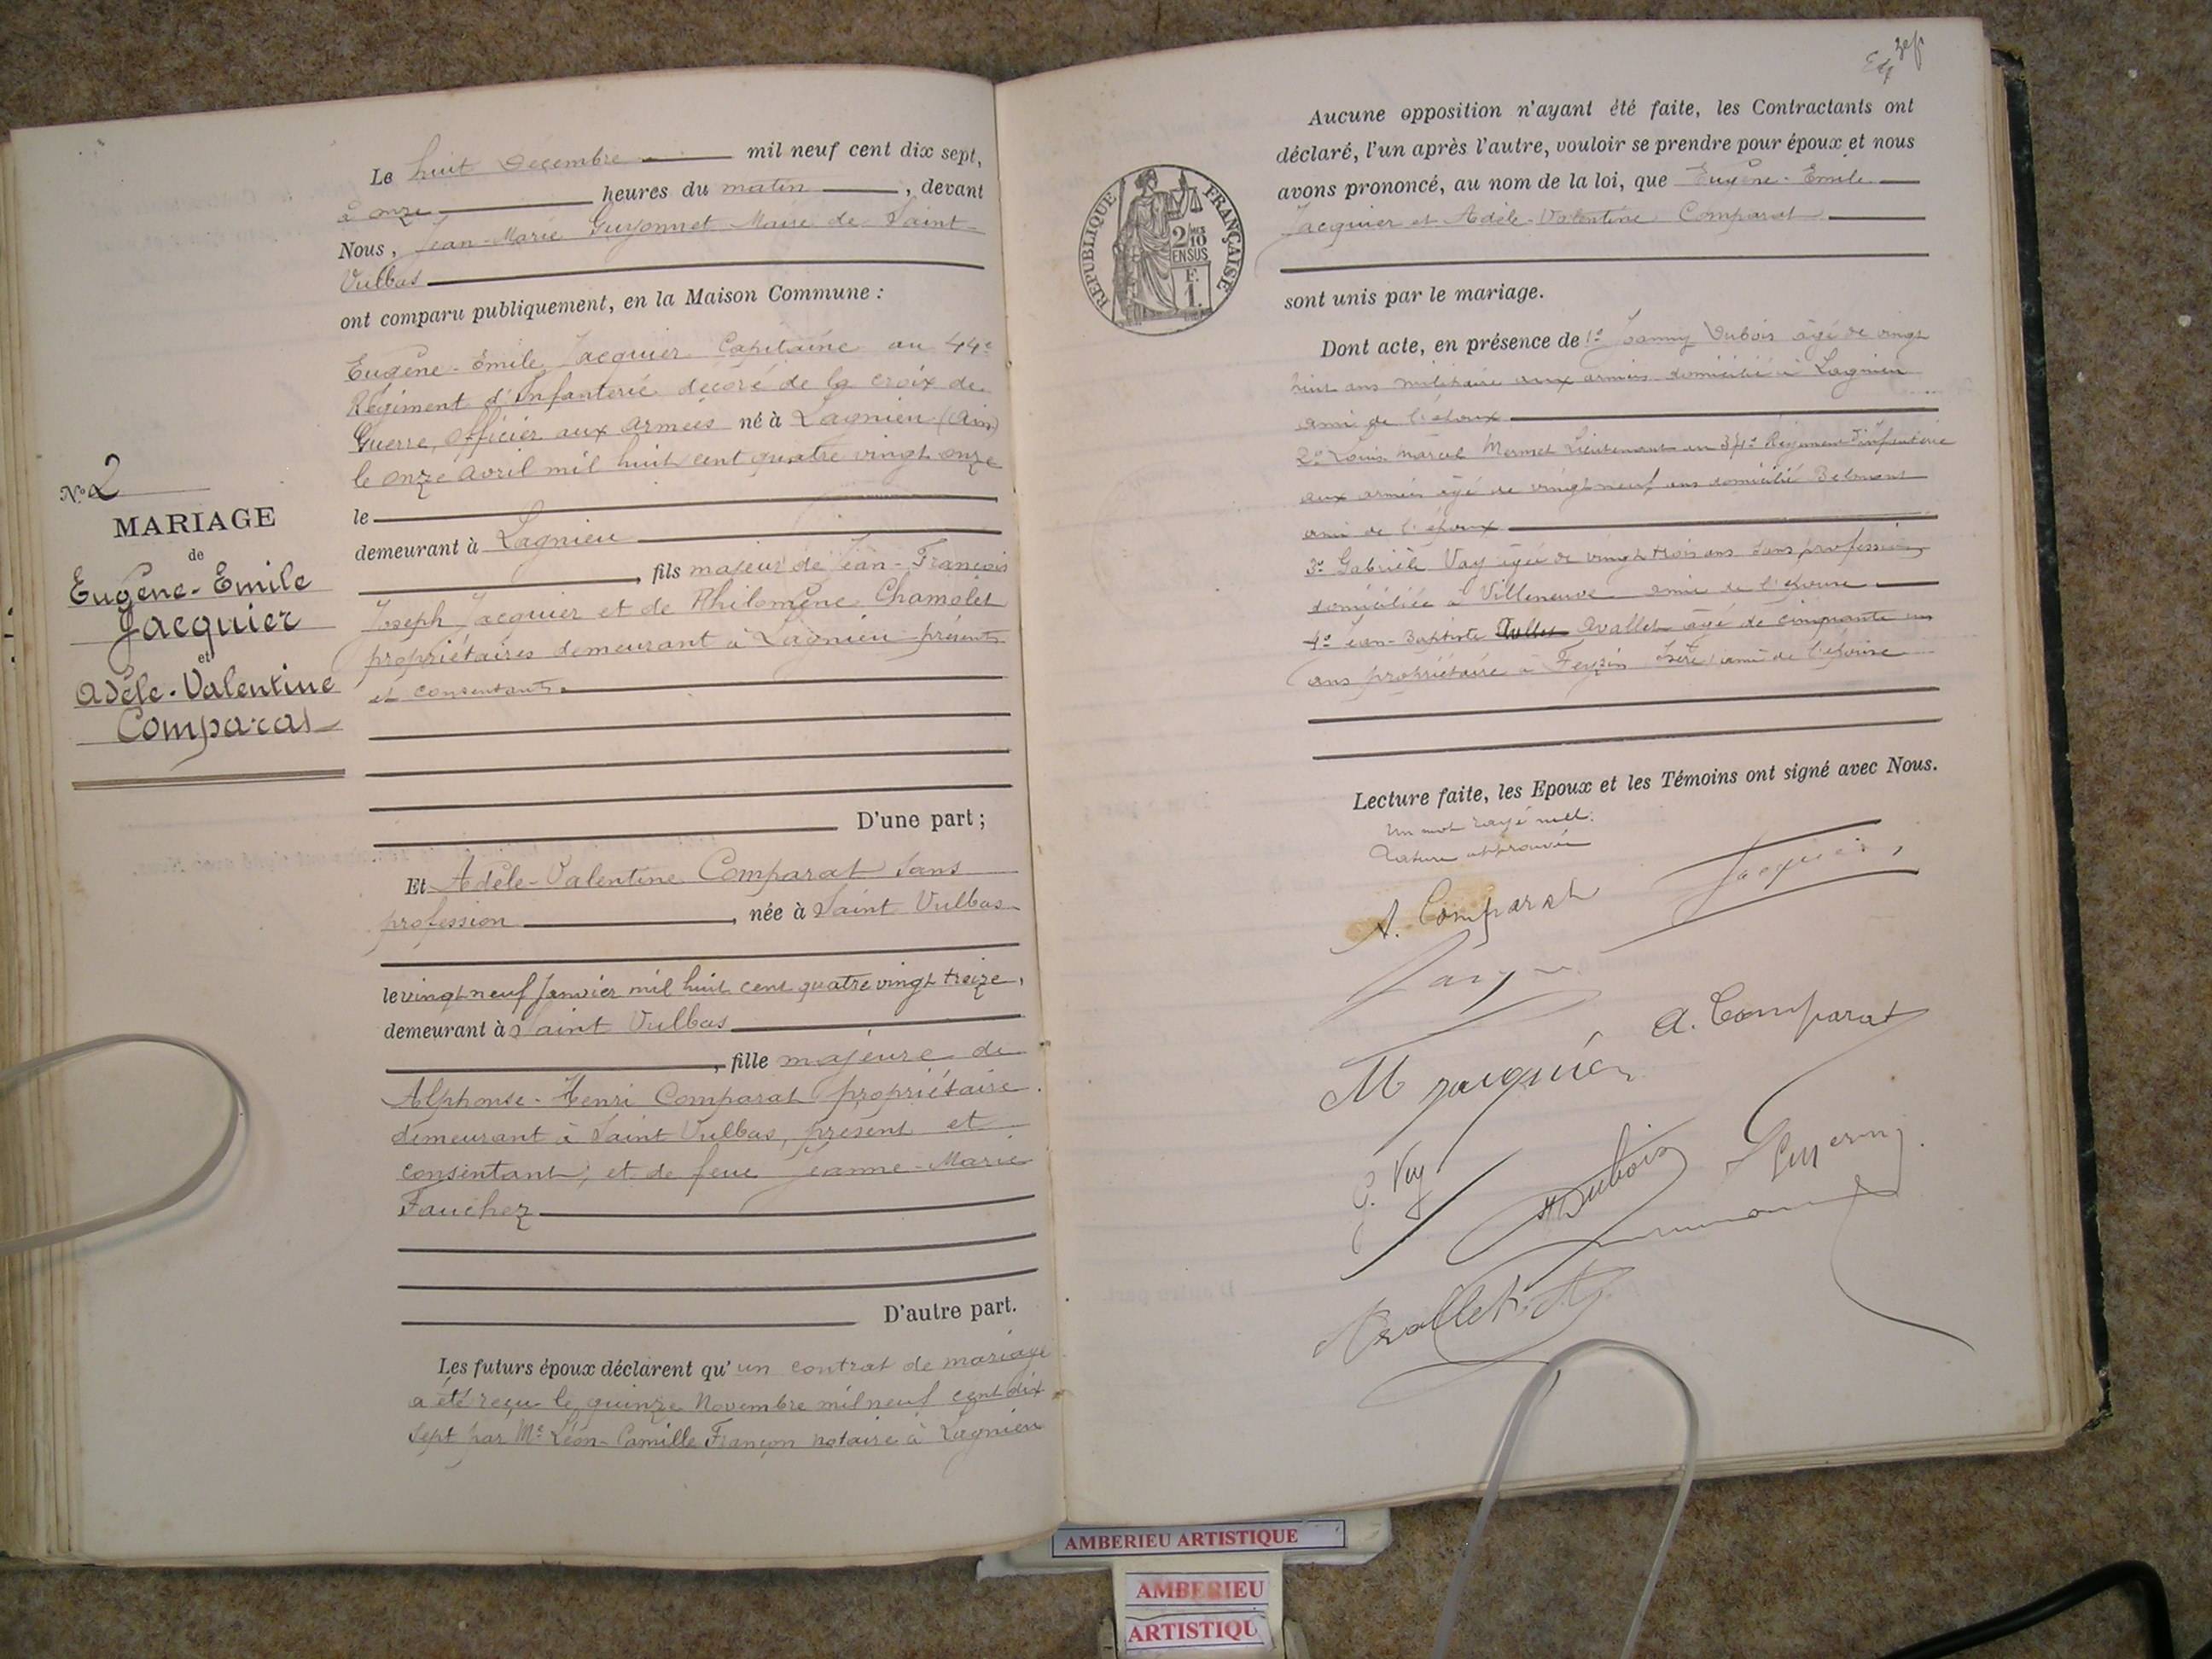 Le huit Decembre mil neuf cent dix sept,
à onze heures du matin, devant
Nous, Jean-Marie Guyonnet Maire de Saint-
Vulbas
ont comparu publiquement, en la Maison Commune :
Eugène-Emile Jacquier Capitaine au 44e
Régiment d'Infanterie décoré de la croix de
Guerre, officier aux armées né à Lagnieu (Ain)
le onze avril mil huit cent quatre vingt onze
le
demeurant à Lagnieu
, fils majeur de Jean-François
Joseph Jacquier et de Philomène Chamolet
propriétaires demeurant à Lagnieu présents
et consentants.
D'une part ;
Et Adèle-Valentine Comparat sans
profession, née à Saint Vulbas
le vingt neuf Janvier mil huit cent quatre vingt treize,
demeurant à Saint Vulbas
, fille majeure de
Alphonse-Henri Comparat propriétaire
demeurant à Saint Vulbas, présent et
consentant, et de feue Jeanne-Marie
Fauchez
D'autre part.
Les futurs époux déclarent qu'un contrat de mariage
a été reçu le quinze Novembre mil neuf cent dix
sept par Me Léon-Camille Françon notaire à Lagnieu
No 2
MARIAGE
de
Eugène-Emile
Jacquier
et
Adèle-Valentine
Comparat
Aucune opposition n'ayant été faite, les Contractants ont
déclaré, l'un après l'autre, vouloir se prendre pour époux et nous
avons prononcé, au nom de la loi, que Eugène-Emile
Jacquier et Adèle-Valentine Comparat
sont unis par le mariage.
Dont acte, en présence de 1° Joanny Dubois âgé de vingt
huit ans militaire aux armées domicilié à Lagnieu
ami de l'époux
2° Louis Marcel Mermet Lieutenant au 34e Régiment d'infanterie
aux armées âgé de vingt neuf ans domicilié Belmont
ami de l'époux
3° Gabrièle Vay âgée de vingt trois ans sans profession
domiciliée à Villeneuve amie de l'épouse
4° Jean-Baptiste Avallet âgé de cinquante un
ans propriétaire à Feyzin Isère ami de l'épouse
Lecture faite, les Epoux et les Témoins ont signé avec Nous.
Un mot rayé nul.
Rature approuvée
A. Comparat Jacquier
A. Comparat
M Jacquier
G. Vay
Dubois
Avallet
REPUBLIQUE FRANÇAISE
2/10
EN SUS
F.
1.
AMBERIEU ARTISTIQUE
AMBERIEU
ARTISTIQU